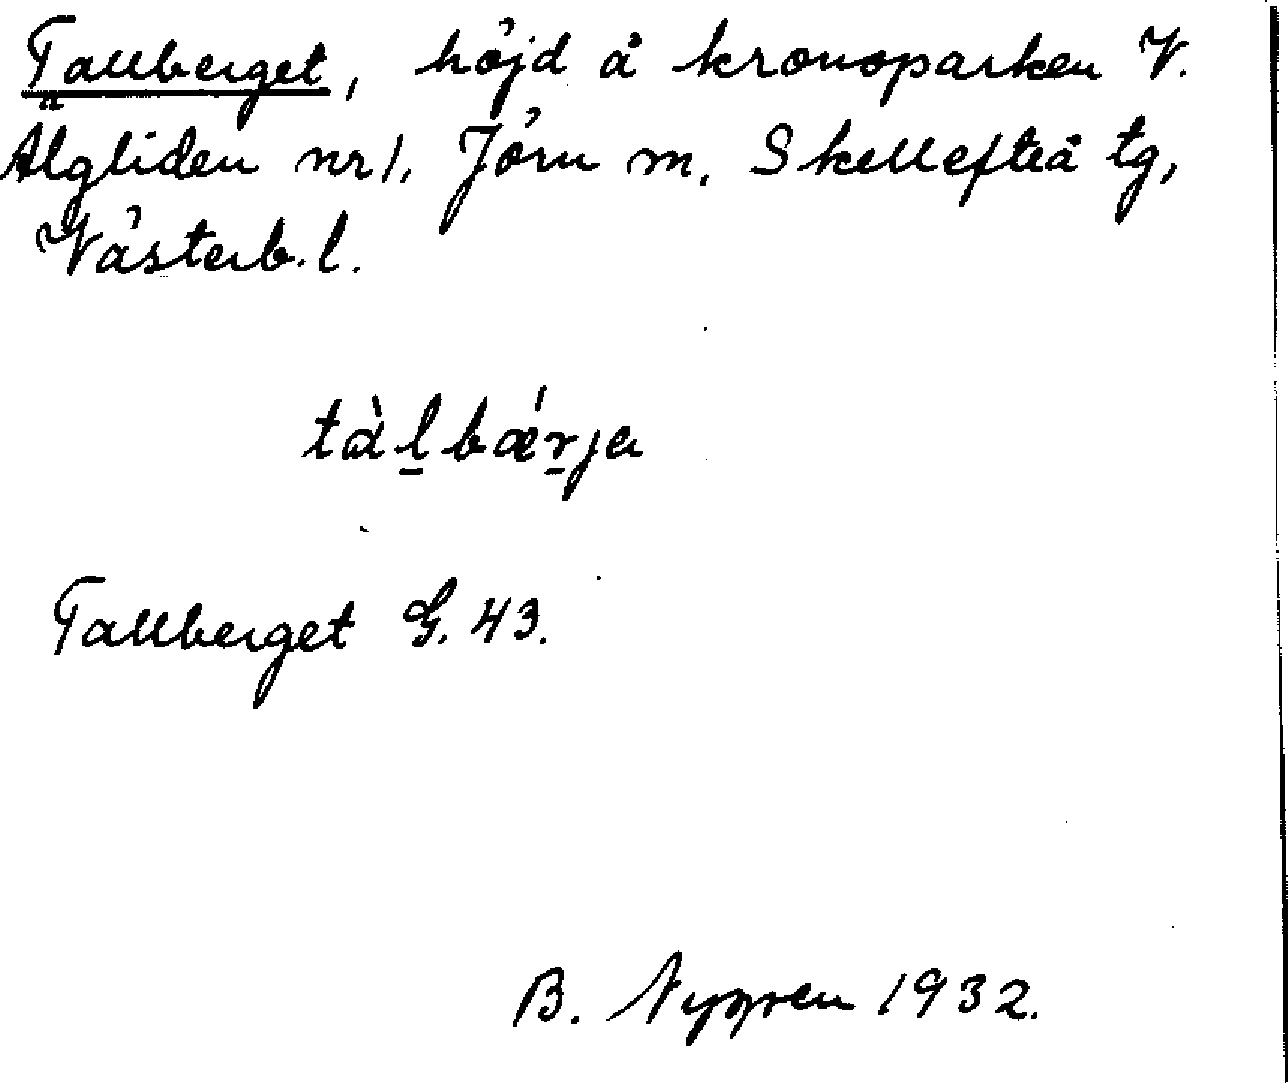 Tallberget, höjd å kronoparken V.
Älgliden nr 1, Jörn m. Skellefteå tg,
Västerb. l.
tàl̲bǽr̲ja
Tallberget G. 43.
B. Nygren 1932.